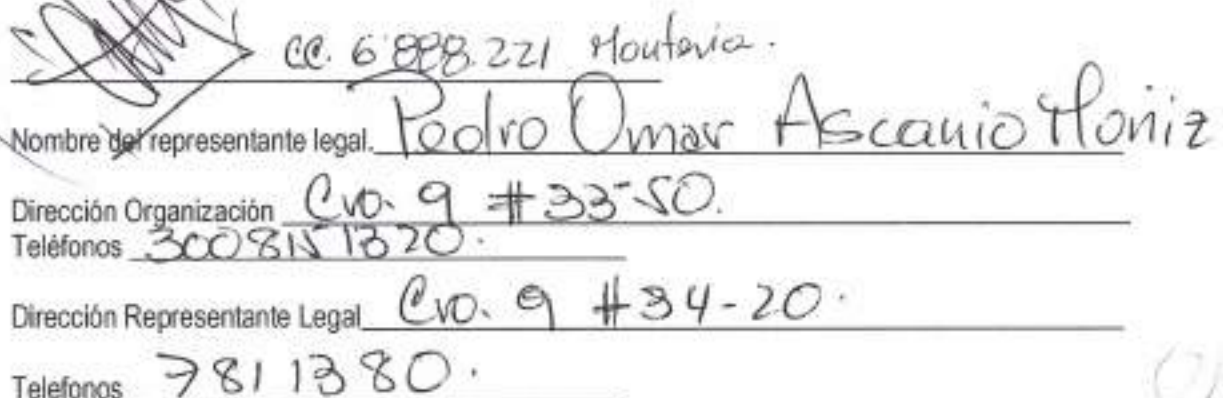 CC. 6'888.221 Monteria.
Nombre del representante legal. Pedro Omar Ascanio Moniz
Dirección Organización Cra. 9 #33-50.
Teléfonos 3008151320.
Dirección Representante Legal Cra. 9 #34-20.
Telefonos 7811380.